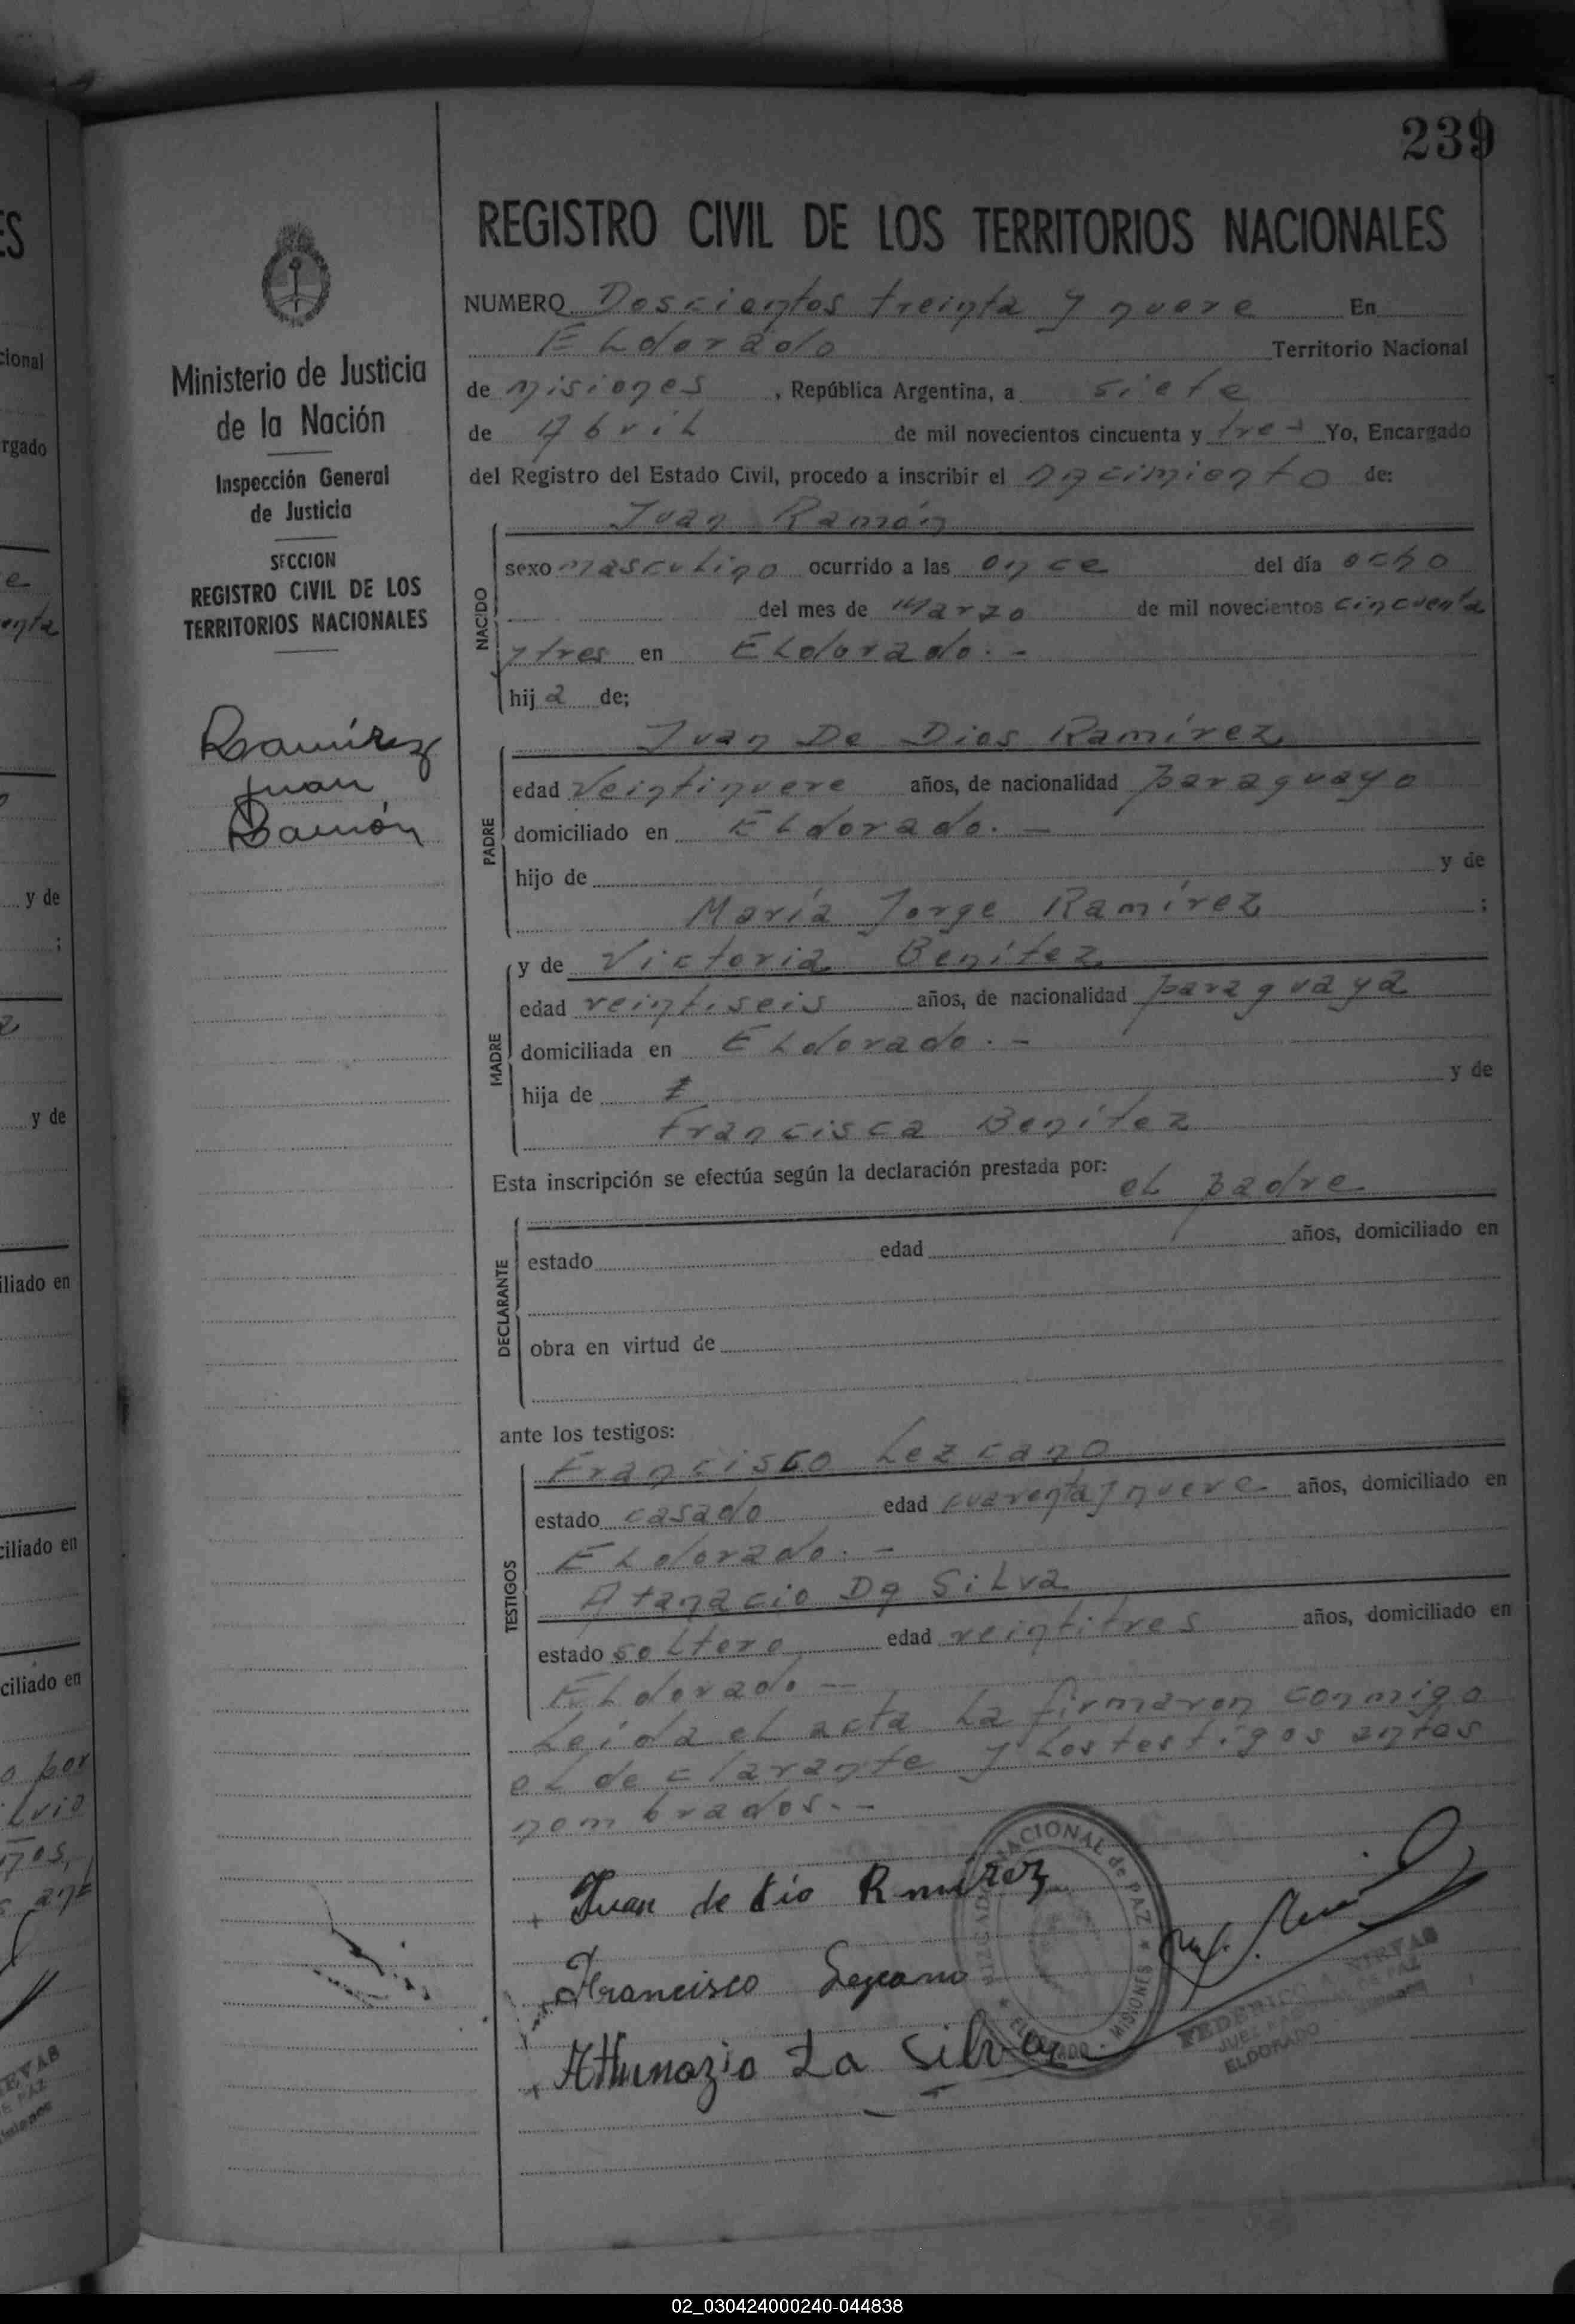 239
REGISTRO CIVIL DE LOS TERRITORIOS NACIONALES
Ministerio de Justicia
de la Nación
Inspección General
de Justicia
SECCION
REGISTRO CIVIL DE LOS
TERRITORIOS NACIONALES
Ramírez
Juan
Ramón
NUMERO Doscientos treinta y nueve En
ELdorado Territorio Nacional
de misiones , República Argentina, a siete
de Abril de mil novecientos cincuenta y tres Yo, Encargado
del Registro del Estado Civil, procedo a inscribir el nacimiento de:
Juan Ramón
NACIDO
sexo masculino ocurrido a las once del día ocho
del mes de Marzo de mil novecientos cincuenta
y tres en ELdorado. -
hij a de;
Juan De Dios Ramírez
PADRE
edad veintinueve años, de nacionalidad paraguayo
domiciliado en ELdorado. -
hijo de y de
María Jorge Ramírez ;
y de Victoria Benítez
MADRE
edad veintiseis años, de nacionalidad paraguaya
domiciliada en ELdorado. -
hija de y de
Francisca Benítez
Esta inscripción se efectúa según la declaración prestada por: el padre
DECLARANTE
estado edad años, domiciliado en
obra en virtud de
ante los testigos:
Francisco Lezcano
TESTIGOS
estado casado edad cuarenta y nueve años, domiciliado en
ELdorado. -
Atanacio Da Silva
estado soltero edad veintitres años, domiciliado en
ELdorado -
Leída el acta la firmaron conmigo
el declarante y los testigos antes
nombrados. -
Juan de Dio Rmirez
Francisco Lezcano
Athunazio La Silva
NACIONAL de PAZ
ELDORADO - MISIONES
FEDERICO A.
JUEZ DE PAZ
ELDORADO
02_030424000240-044838